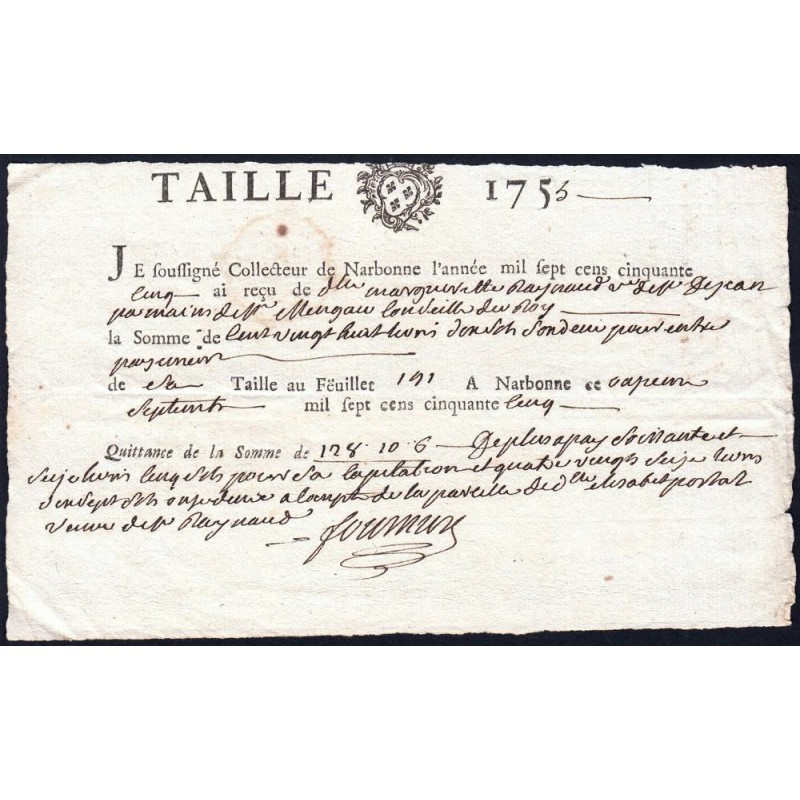 TAILLE 1755
JE soussigné Collecteur de Narbonne l'année mil sept cens cinquante
cinq ai reçu de dlle margueritte Raynaud ve de Mr Dejean
par mains de Mr Mengau Conseille du Roy
la Somme de Cent vingt huit livres dix sols six den pour entre
payement
de sa Taille au Fëuillet 191 A Narbonne ce
Septembre mil sept cens cinquante cinq
Quittance de la Somme de 128.10.6 De plus a pay Soixante et
seize livres cinq sols pour sa Capitation et quatre vingts seize livres
dix sept sols onze deniers a Compte de la pareille de dlle elisabet portal
veuve de Mr Raynaud
fournier